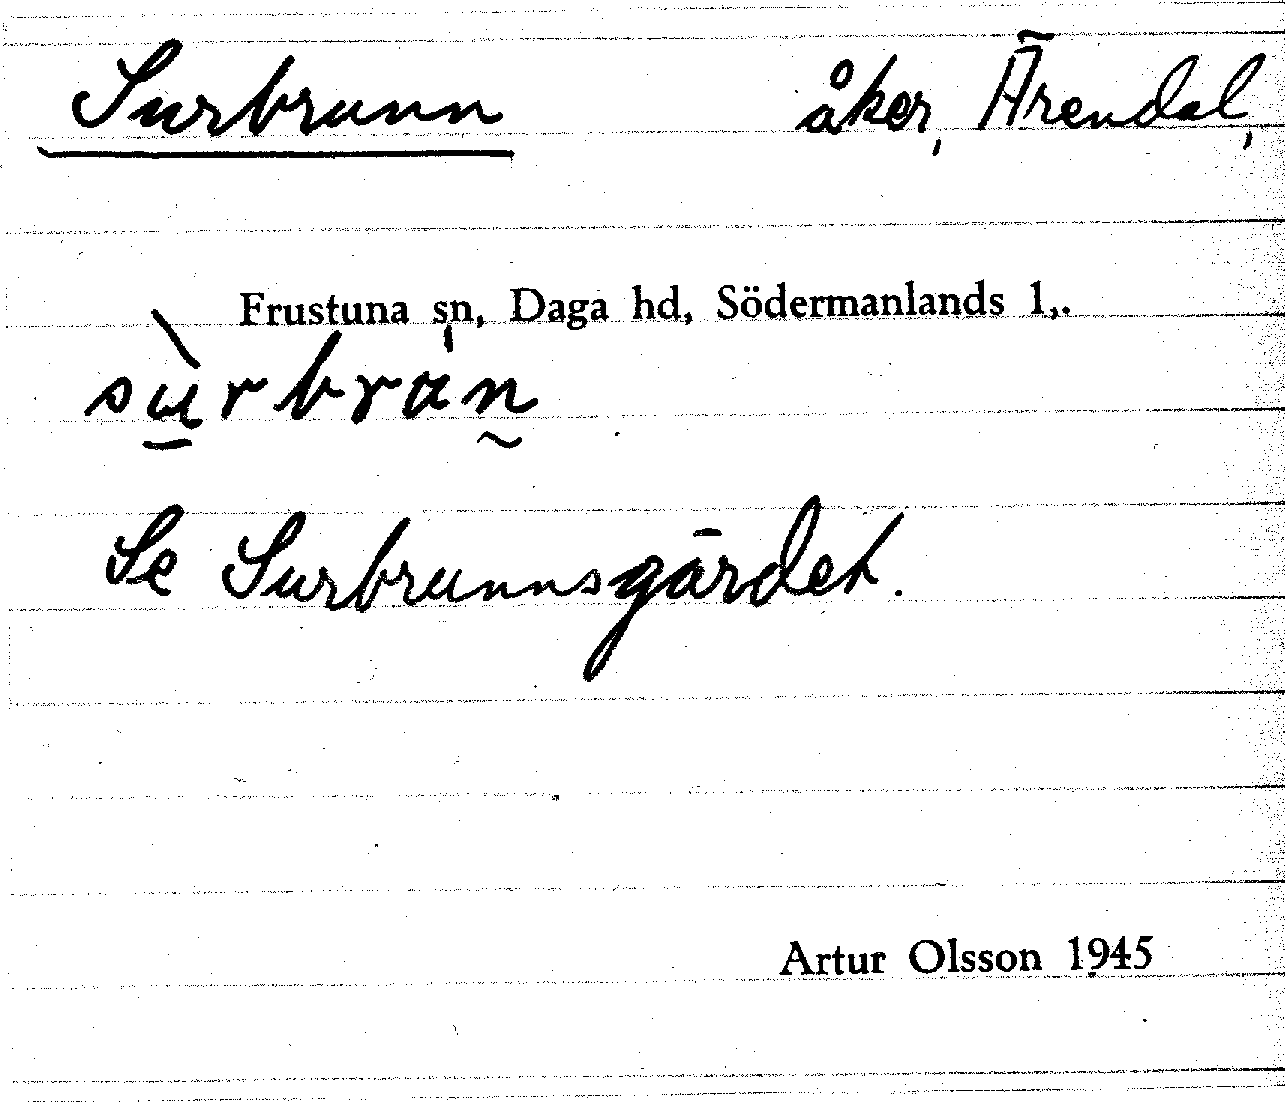 Surbrunn åker, Ärendal,
Frustuna sn, Daga hd, Södermanlands l,.
sùrbràn
Se Surbrunnsgärdet.
Artur Olsson 1945